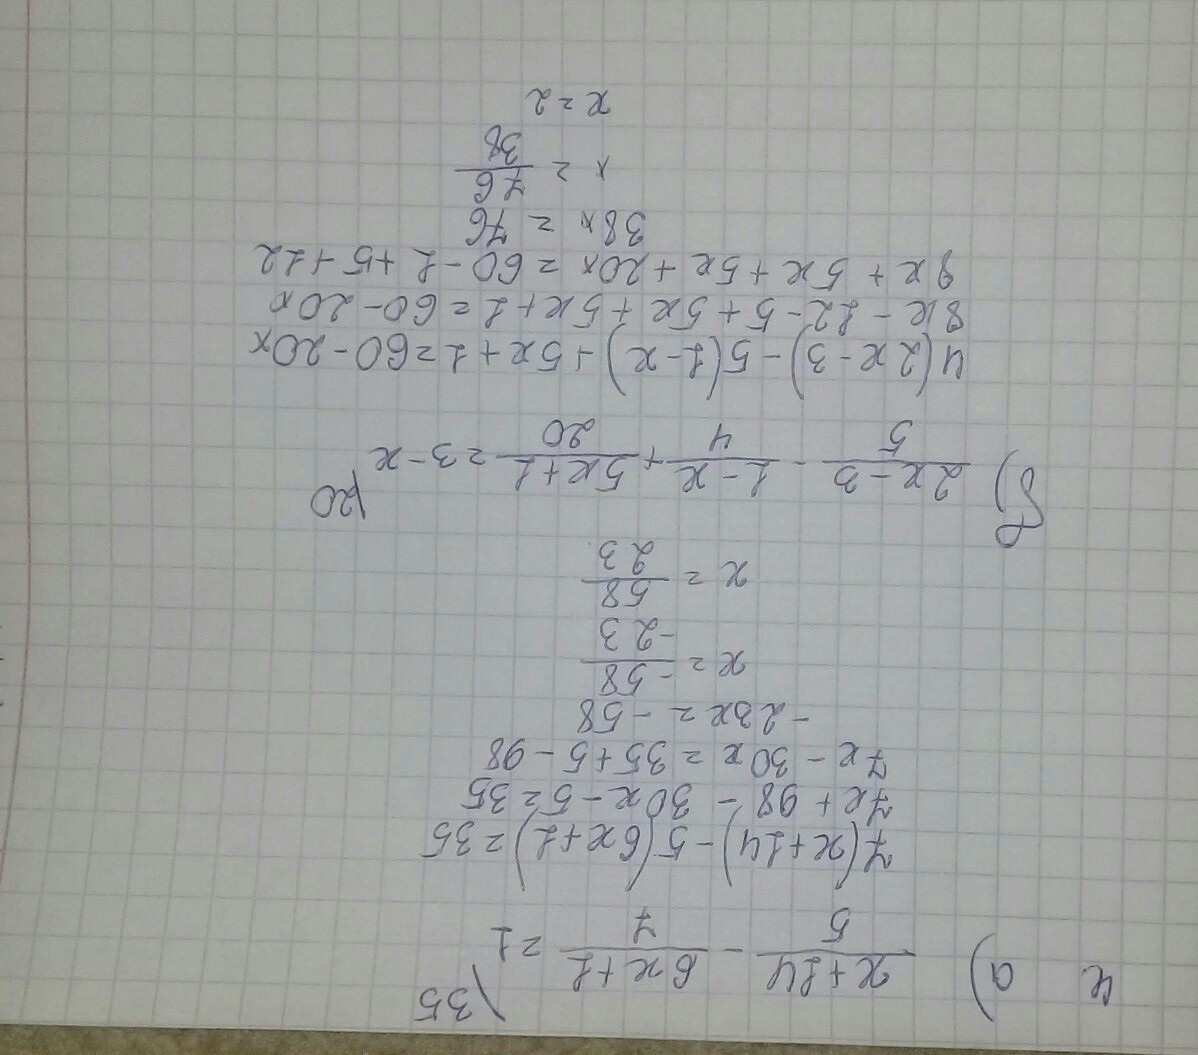 4 а) (x+14)/5 - (6x+1)/7 = 1 \35
7(x+14)-5(6x+1)=35
7x+98 - 30x-5=35
7x-30x=35+5-98
-23x = -58
x = -58/-23
x = 58/23
б) (2x-3)/5 - (1-x)/4 + (5x+1)/20 = 3-x |20
4(2x-3)-5(1-x)+5x+1=60-20x
8x-12-5+5x+5x+1=60-20x
9x+5x+5x+20x=60-1+5+12
38x = 76
x = 76/38
x = 2